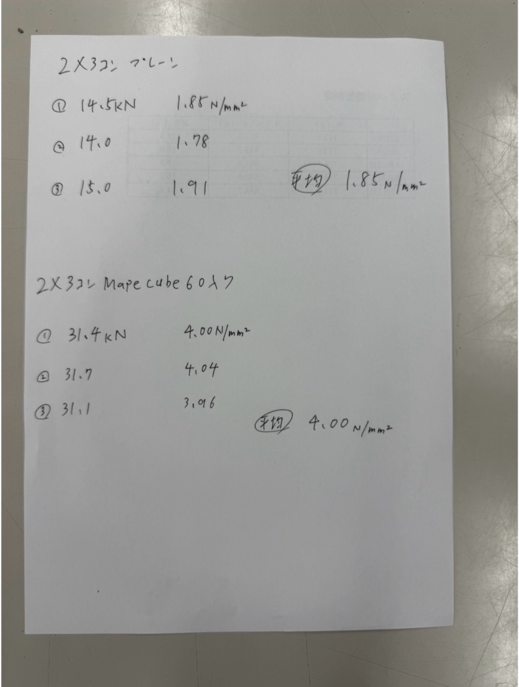 2×3コン プレーン
① 14.5KN 1.85 N/mm²
② 14.0 1.78
③ 15.0 1.91
平均 1.85 N/mm²
2×3コン Mape cube 60入り
① 31.4KN 4.00 N/mm²
② 31.7 4.04
③ 31.1 3.96
平均 4.00 N/mm²